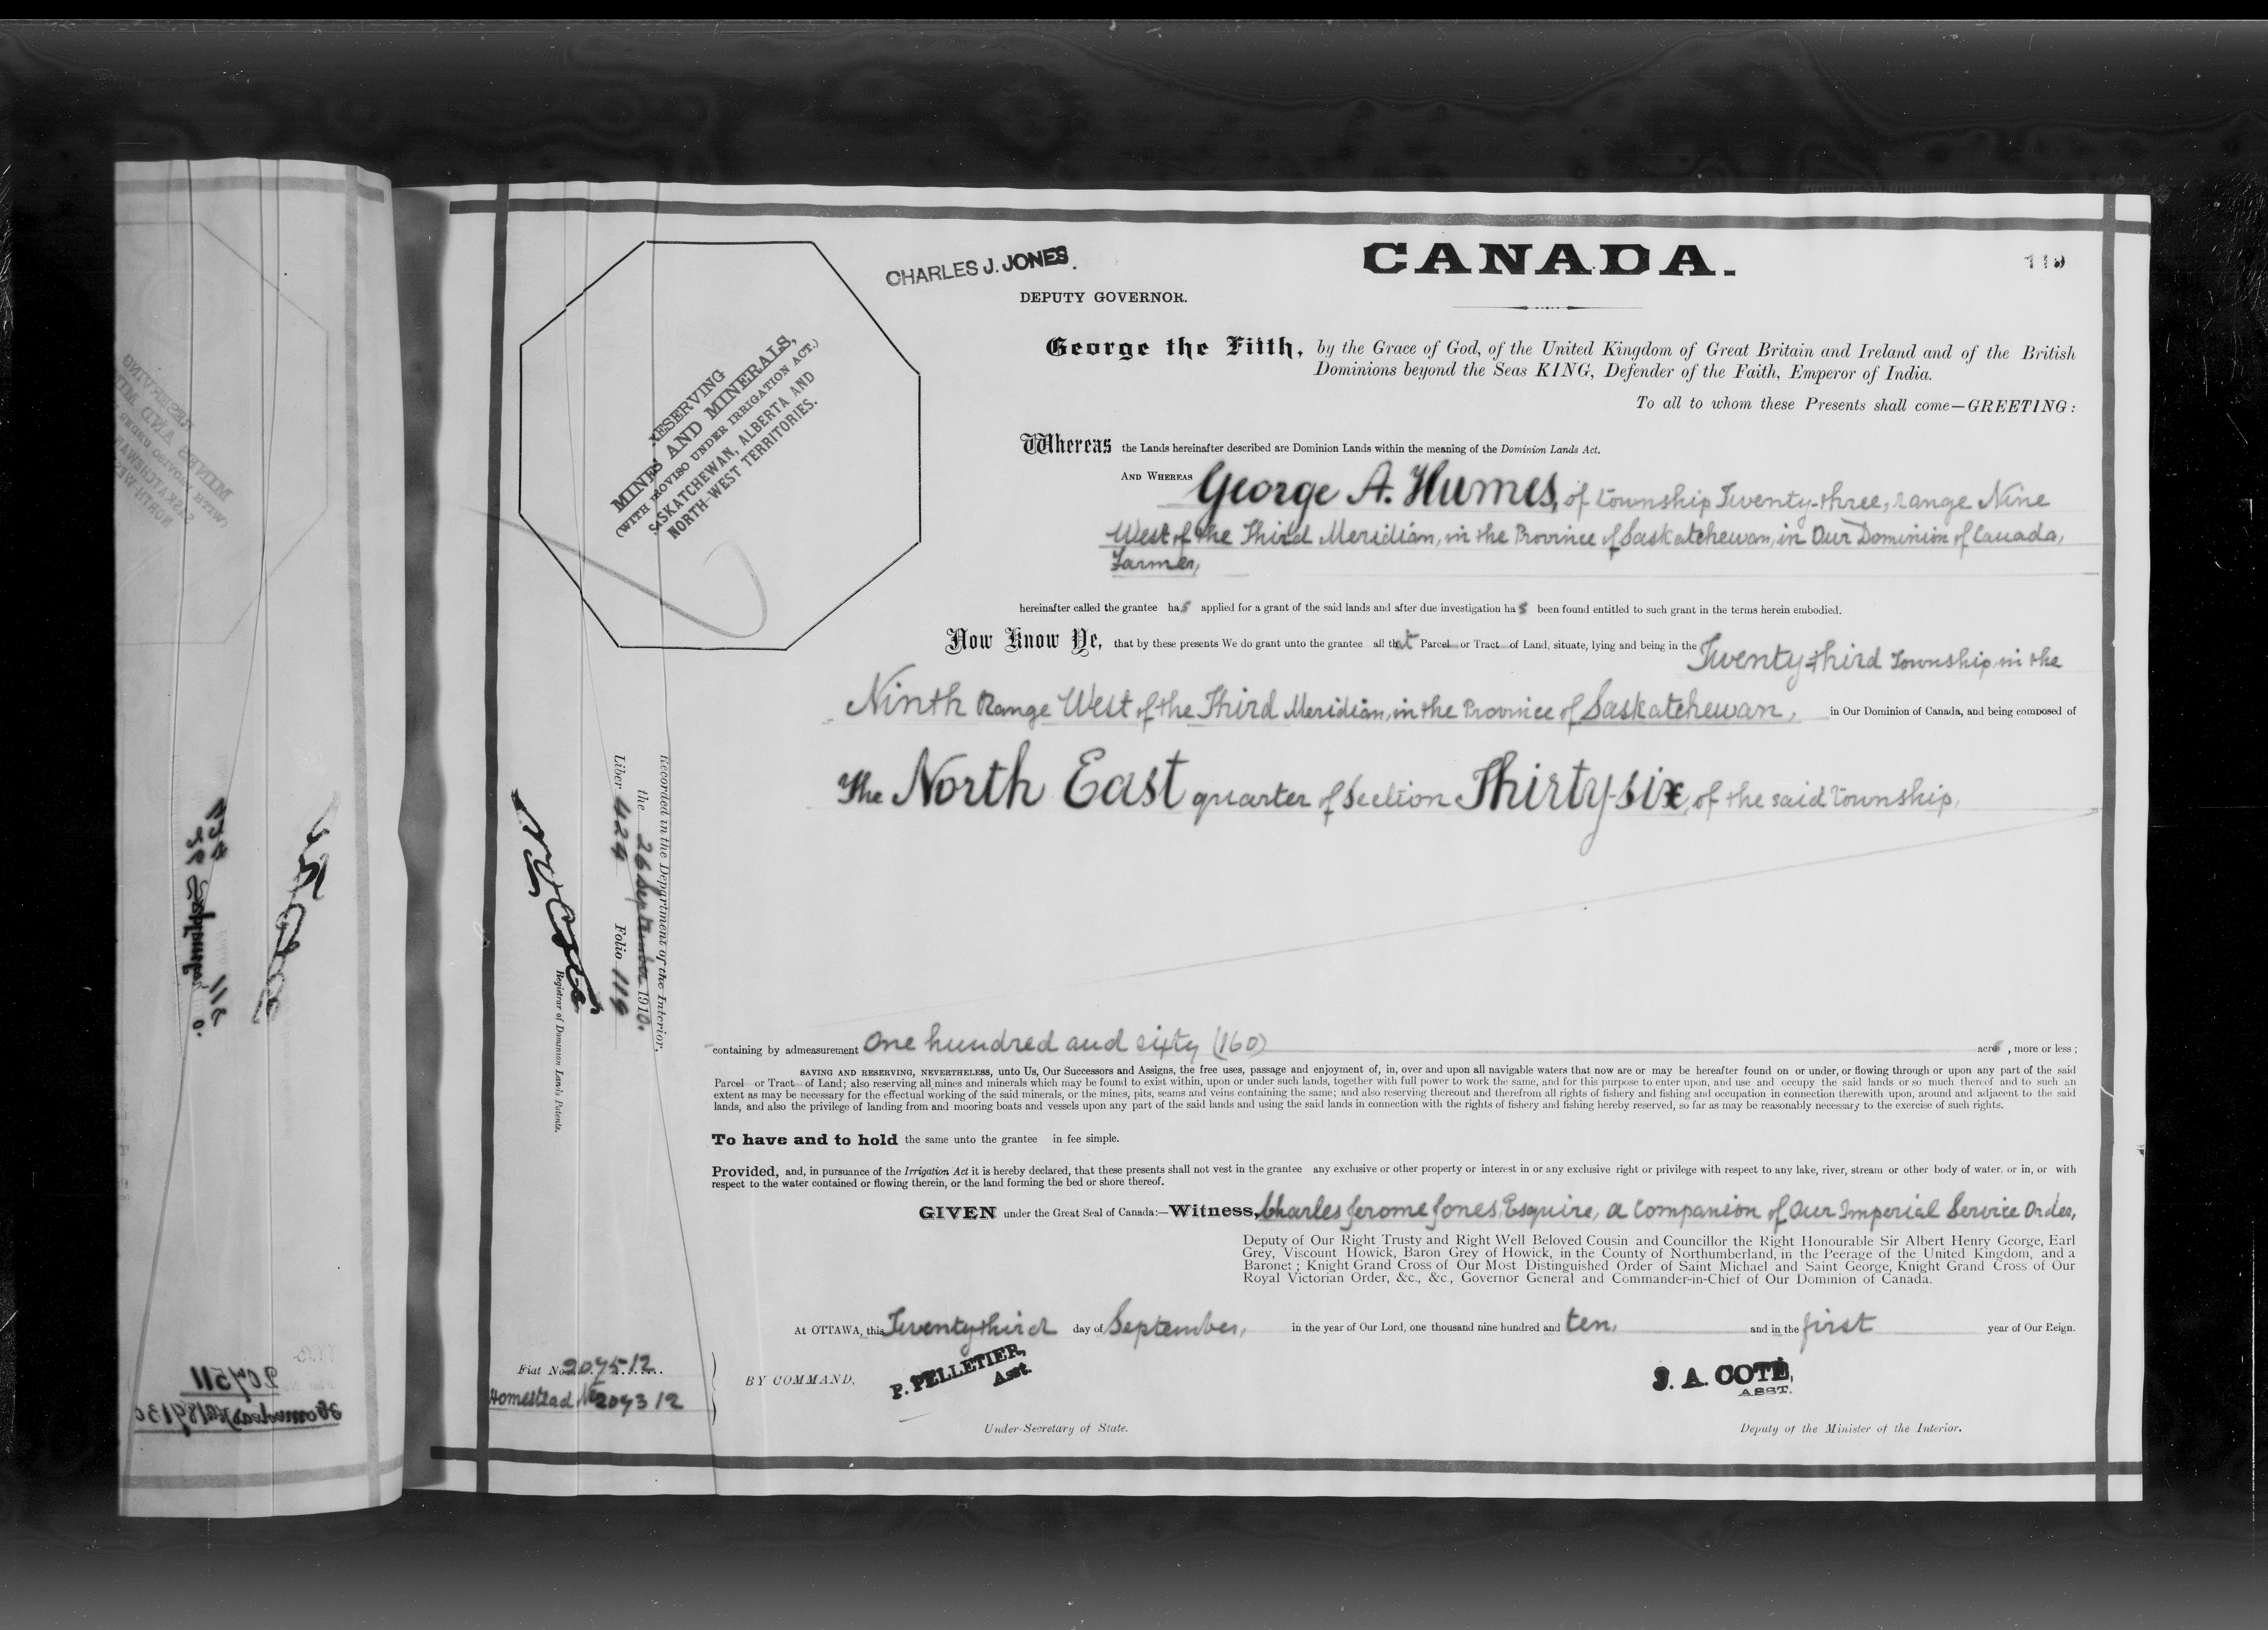 CHARLES J. JONES.
CANADA.
119
DEPUTY GOVERNOR.
RESERVING
MINES AND MINERALS,
(WITH PROVISO UNDER IRRIGATION ACT.)
SASKATCHEWAN, ALBERTA AND
NORTH-WEST TERRITORIES.
George the Fifth, by the Grace of God, of the United Kingdom of Great Britain and Ireland and of the British
Dominions beyond the Seas KING, Defender of the Faith, Emperor of India.
To all to whom these Presents shall come—GREETING:
Whereas the Lands hereinafter described are Dominion Lands within the meaning of the Dominion Lands Act.
AND WHEREAS George A. Humes, of township Twenty-three, range Nine
West of the Third Meridian, in the Province of Saskatchewan, in Our Dominion of Canada,
Farmer,
hereinafter called the grantee has applied for a grant of the said lands and after due investigation has been found entitled to such grant in the terms herein embodied.
Now Know Ye, that by these presents We do grant unto the grantee all that Parcel or Tract of Land, situate, lying and being in the Twenty-third Township, in the
Ninth Range West of the Third Meridian, in the Province of Saskatchewan, in Our Dominion of Canada, and being composed of
The North East quarter of Section Thirty-six, of the said township,
Recorded in the Department of the Interior,
the 26 September 1910.
Liber 424 Folio 119
N O Coté
Registrar of Dominion Lands Patents.
containing by admeasurement One hundred and sixty (160) acres, more or less;
SAVING AND RESERVING, NEVERTHELESS, unto Us, Our Successors and Assigns, the free uses, passage and enjoyment of, in, over and upon all navigable waters that now are or may be hereafter found on or under, or flowing through or upon any part of the said
Parcel or Tract of Land; also reserving all mines and minerals which may be found to exist within, upon or under such lands, together with full power to work the same, and for this purpose to enter upon, and use and occupy the said lands or so much thereof and to such an
extent as may be necessary for the effectual working of the said minerals, or the mines, pits, seams and veins containing the same; and also reserving thereout and therefrom all rights of fishery and fishing and occupation in connection therewith upon, around and adjacent to the said
lands, and also the privilege of landing from and mooring boats and vessels upon any part of the said lands and using the said lands in connection with the rights of fishery and fishing hereby reserved, so far as may be reasonably necessary to the exercise of such rights.
To have and to hold the same unto the grantee in fee simple.
Provided, and, in pursuance of the Irrigation Act it is hereby declared, that these presents shall not vest in the grantee any exclusive or other property or interest in or any exclusive right or privilege with respect to any lake, river, stream or other body of water, or in, or with
respect to the water contained or flowing therein, or the land forming the bed or shore thereof.
GIVEN under the Great Seal of Canada:—Witness, Charles Jerome Jones, Esquire, a Companion of Our Imperial Service Order,
Deputy of Our Right Trusty and Right Well Beloved Cousin and Councillor the Right Honourable Sir Albert Henry George, Earl
Grey, Viscount Howick, Baron Grey of Howick, in the County of Northumberland, in the Peerage of the United Kingdom, and a
Baronet; Knight Grand Cross of Our Most Distinguished Order of Saint Michael and Saint George, Knight Grand Cross of Our
Royal Victorian Order, &c., &c., Governor General and Commander-in-Chief of Our Dominion of Canada.
At OTTAWA, this Twenty-third day of September, in the year of Our Lord, one thousand nine hundred and ten, and in the first year of Our Reign.
Fiat No. 207512
Homestead No 207312
BY COMMAND,
P. PELLETIER,
Asst.
Under-Secretary of State.
J. A. COTÉ,
ASST.
Deputy of the Minister of the Interior.